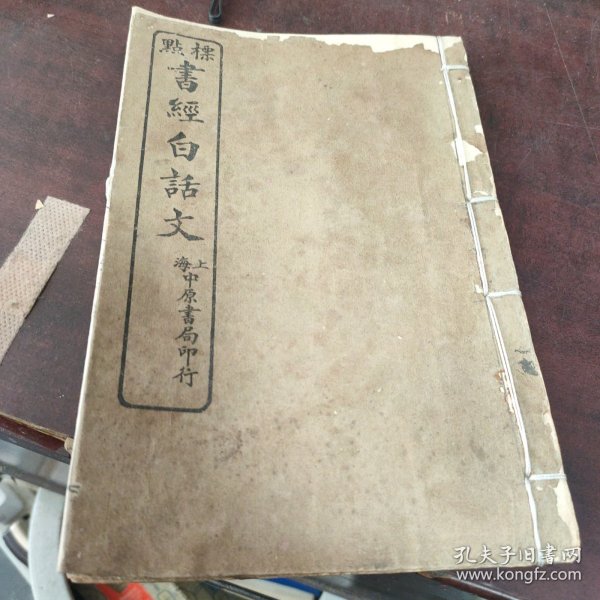 標點
書經白話文
上海
中原書局印行
孔夫子旧書网
www.kongfz.com